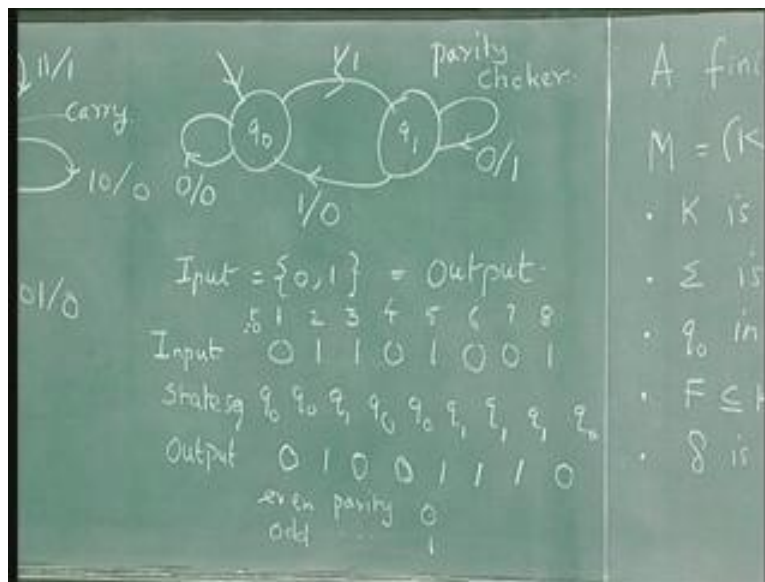 11/1
carry
10/0
01/0
1/1
parity
cheker
q0
q1
0/0
0/1
1/0
Iput = {0,1} = Output
1 2 3 4 5 6 7 8
Input 0 1 1 0 1 0 0 1
State sq q0 q0 q1 q0 q0 q1 q1 q1 q0
Output 0 1 0 0 1 1 1 0
even parity 0
odd " 1
A fini
M = (K
· K is
· Σ is
· q0 in
· F ⊆ K
· δ is